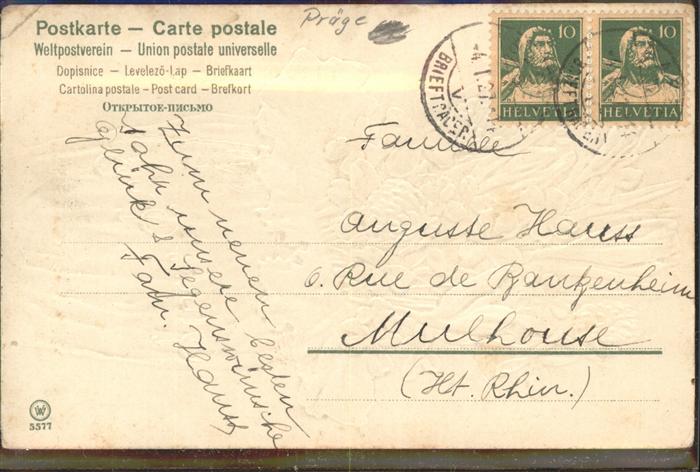 Präge
Postkarte — Carte postale
Weltpostverein — Union postale universelle
Dopisnice — Levelező-Lap — Briefkaart
Cartolina postale – Post card – Brefkort
Открытое-письмо
10
HELVETIA
10
HELVETIA
BRIEFTRÄGER
Zum neuen
Jahr unsere besten
Glück & Segenswünsche
Fam. Hauss
Familie
Auguste Hauss
6. Rue de Bankenheim
Mulhouse
(Ht. Rhin.)
W
5577